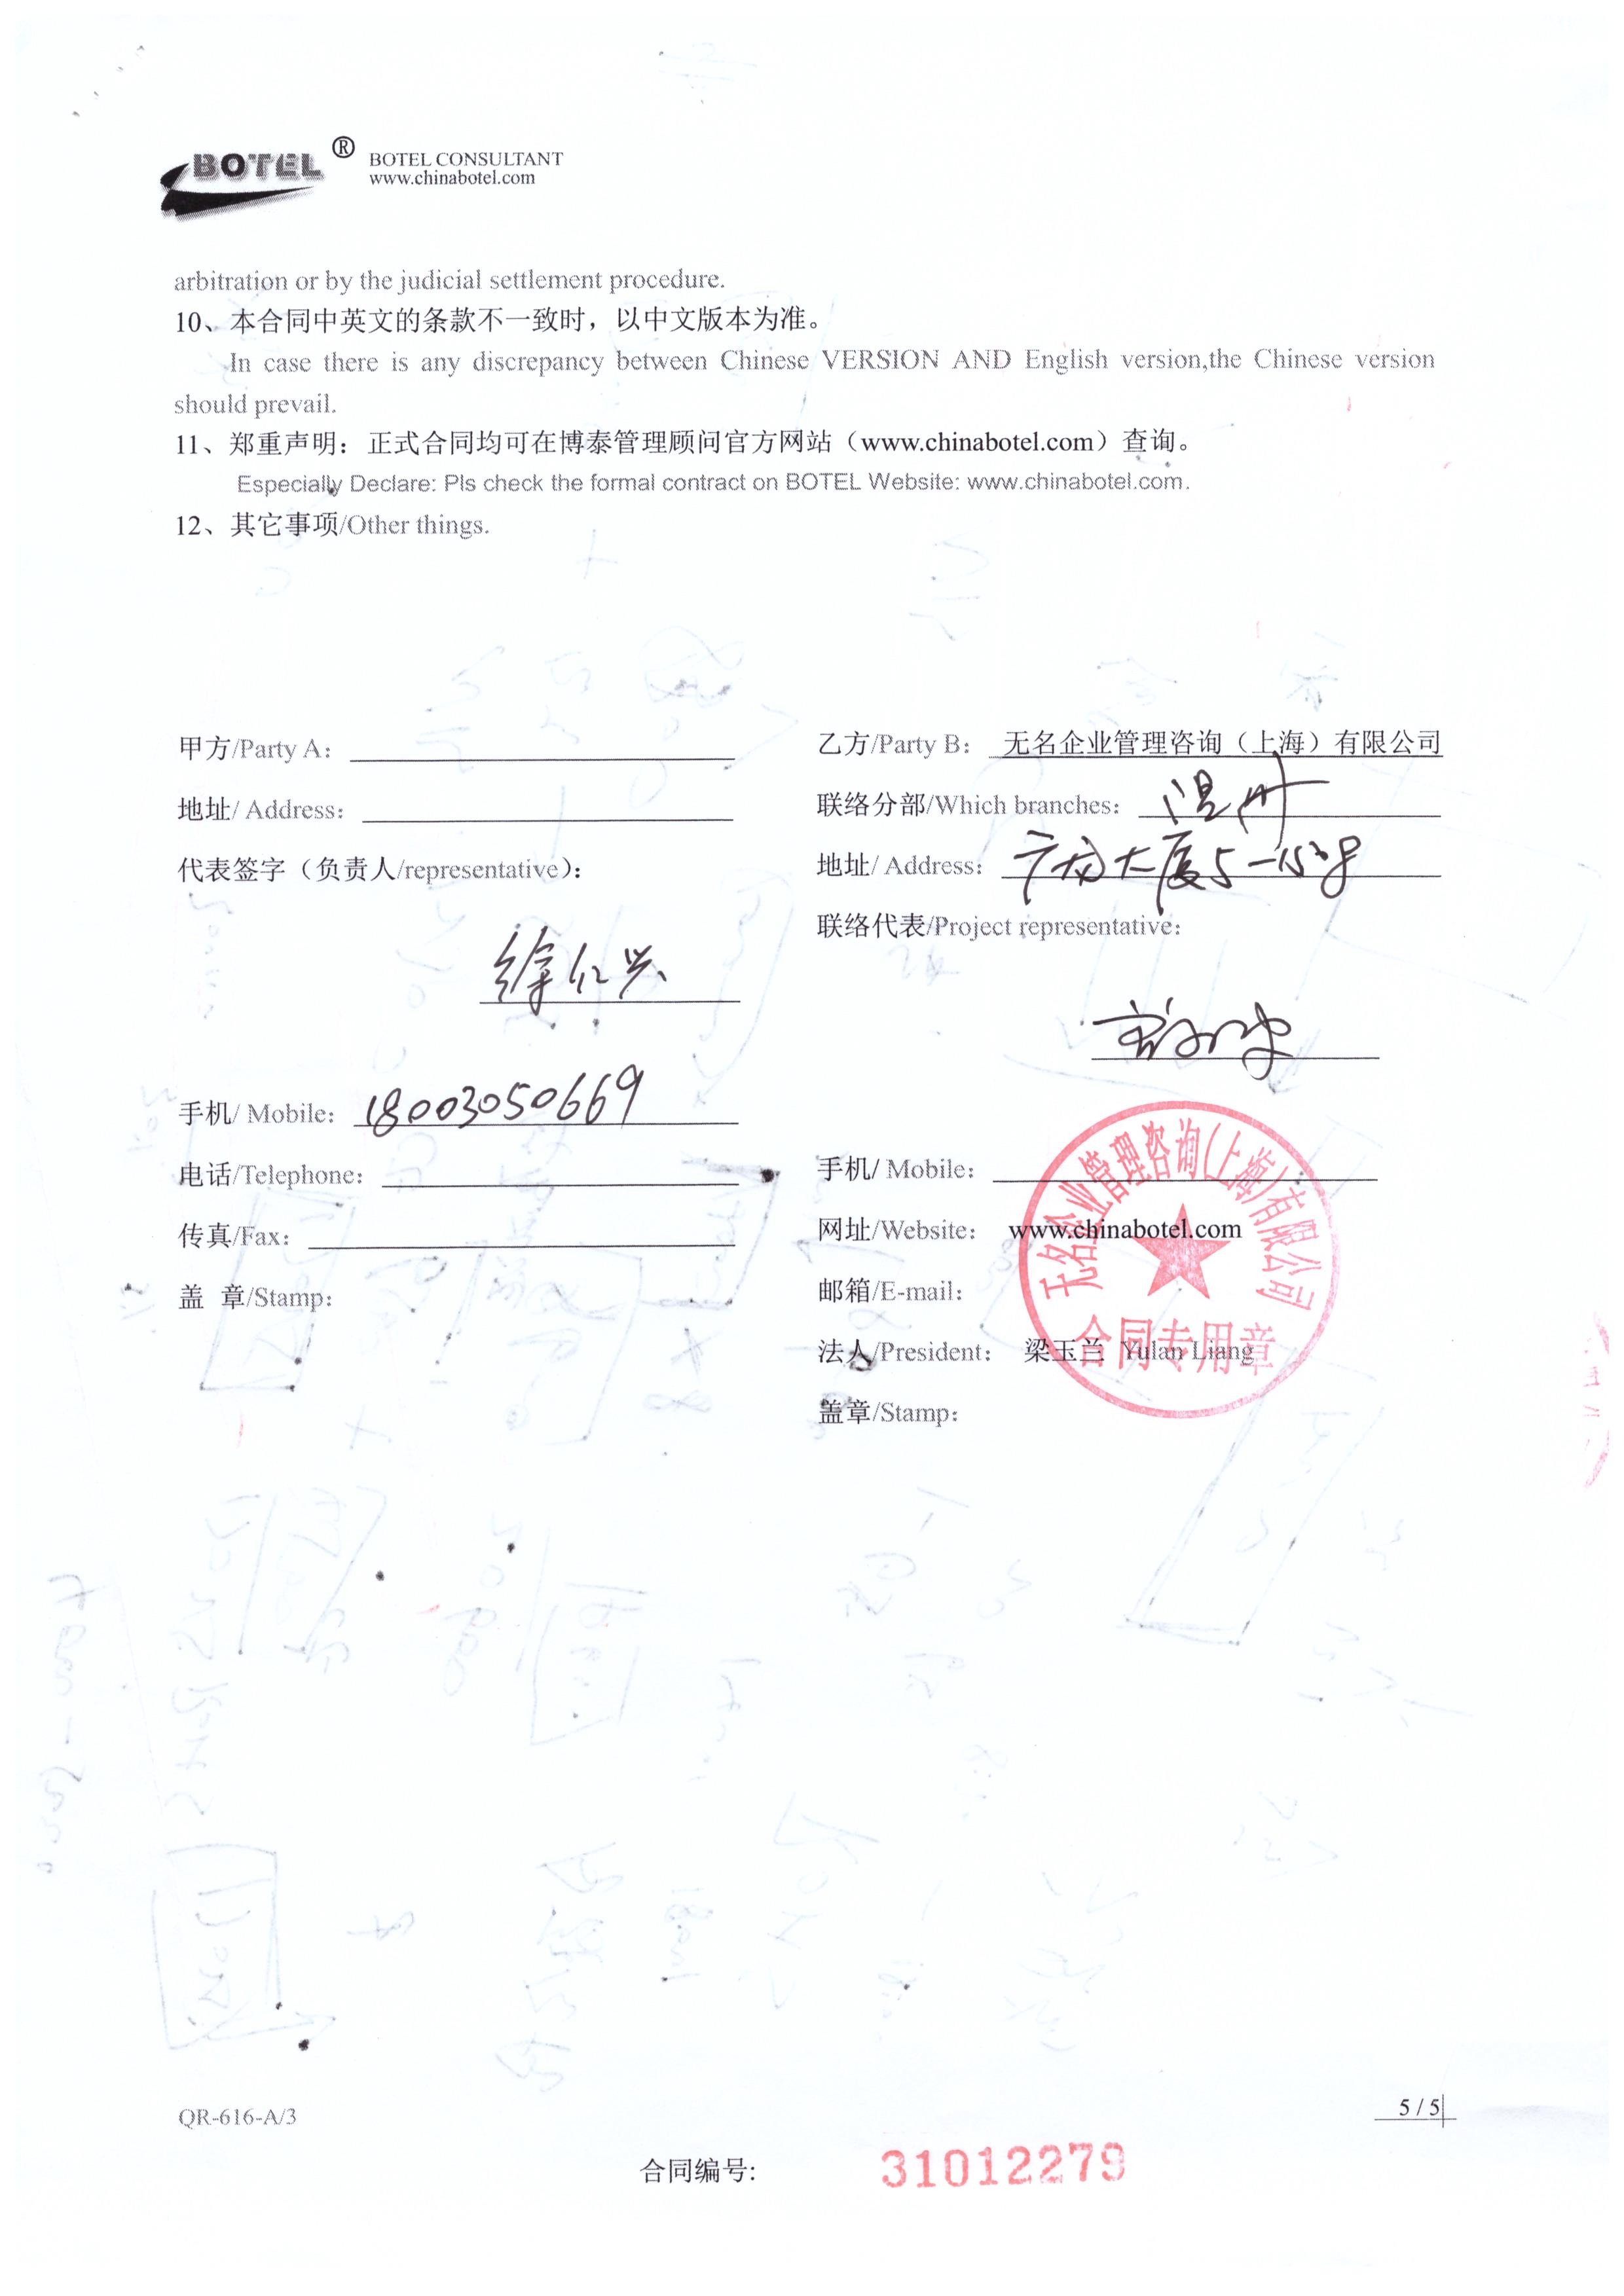 BOTEL ® BOTEL CONSULTANT
www.chinabotel.com
arbitration or by the judicial settlement procedure.
10、本合同中英文的条款不一致时，以中文版本为准。
In case there is any discrepancy between Chinese VERSION AND English version,the Chinese version
should prevail.
11、郑重声明：正式合同均可在博泰管理顾问官方网站（www.chinabotel.com）查询。
Especially Declare: Pls check the formal contract on BOTEL Website: www.chinabotel.com.
12、其它事项/Other things.
甲方/Party A：
地址/ Address：
代表签字（负责人/representative）：
徐仁兴
手机/ Mobile：18003050669
电话/Telephone：
传真/Fax：
盖 章/Stamp：
乙方/Party B： 无名企业管理咨询（上海）有限公司
联络分部/Which branches：温州
地址/ Address：大厦5-
联络代表/Project representative：
手机/ Mobile：
网址/Website： www.chinabotel.com
邮箱/E-mail：
法人/President： 梁玉兰 Yulan Liang
盖章/Stamp：
无名企业管理咨询(上海)有限公司
合同专用章
QR-616-A/3
5 / 5
合同编号: 31012279